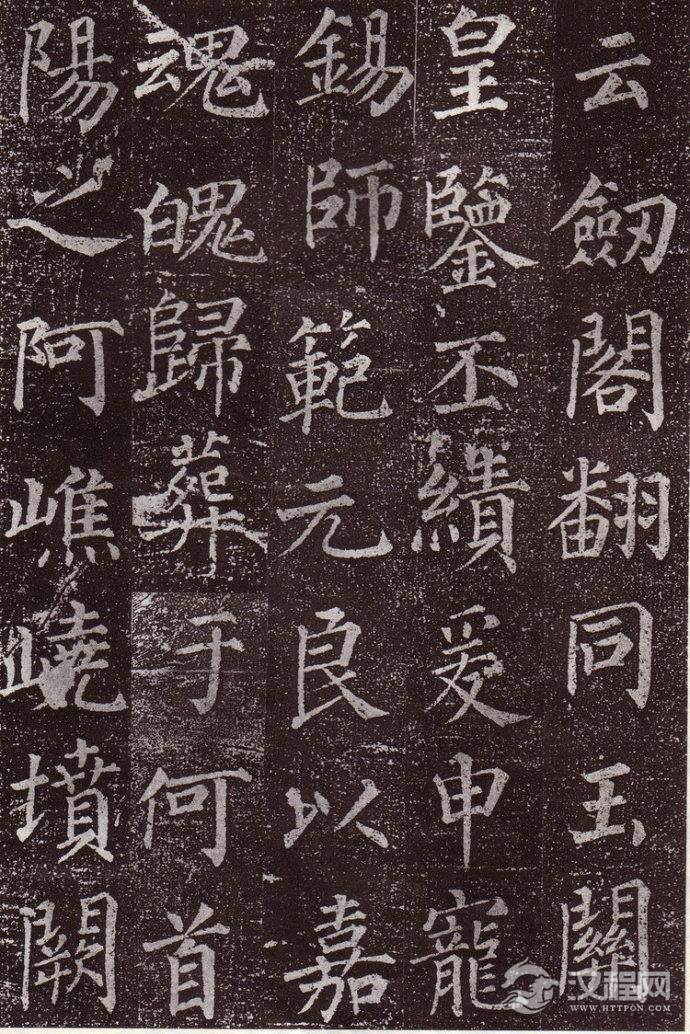 云劔閣翻同玉關
皇鑒丕績爰申寵
錫師範元良以嘉
魂魄歸葬于何首
陽之阿嶕嶢墳闕
汉程网
WWW.HTTPCN.COM